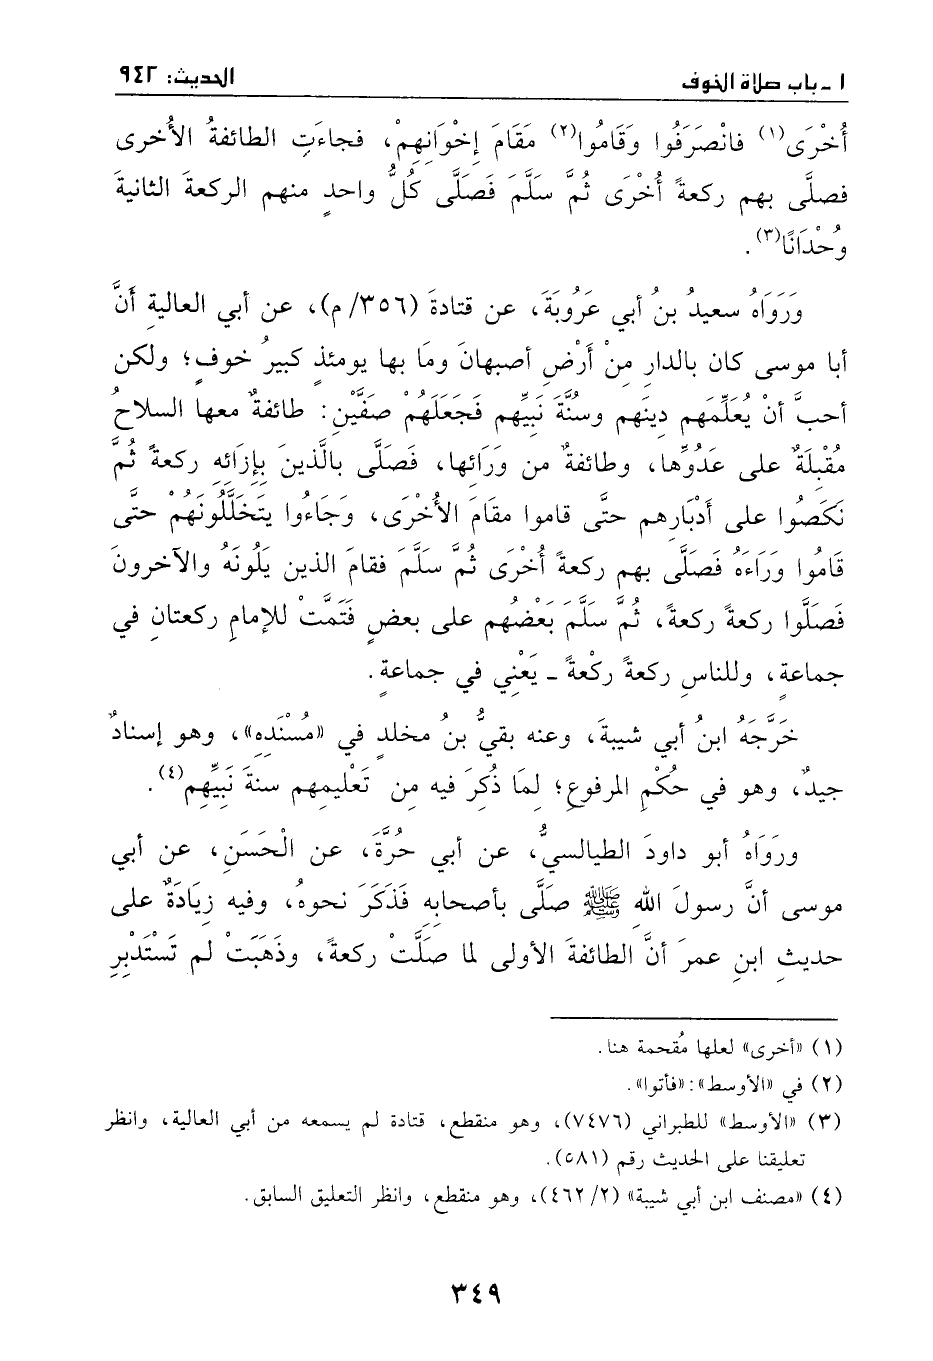 ١ - باب صلاة الخوف
الحديث: ٩٤٢
أُخْرَى(١) فانْصَرَفُوا وَقَامُوا(٢) مَقَامَ إِخْوَانِهِمْ، فجاءَتِ الطائفةُ الأُخرى
فصلَّى بهم ركعةً أُخْرَى ثُمَّ سَلَّمَ فَصَلَّى كُلُّ واحدٍ منهم الركعةَ الثانيةَ
وُحْدَانًا(٣).
وَرَوَاهُ سعيدُ بنُ أبي عَرُوبَةَ، عن قتادةَ (٣٥٦/ م)، عن أبي العاليةِ أَنَّ
أبا موسى كان بالدار مِنْ أَرْضِ أصبهانَ ومَا بها يومئذٍ كبيرُ خوفٍ؛ ولكن
أحبَّ أنْ يُعَلِّمَهم دينَهم وسنَّةَ نَبِيِّهم فَجَعَلَهُمْ صَفَّيْنِ: طائفةٌ معها السلاحُ
مُقْبِلَةٌ على عَدُوِّها، وطائفةٌ من وَرَائها، فَصَلَّى بالَّذينَ بِإِزَائه ركعةً ثُمَّ
نَكَصُوا على أَدْبَارِهم حتَّى قاموا مقامَ الأُخْرَى، وَجَاءُوا يَتَخَلَّلُونَهُمْ حتَّى
قَامُوا وَرَاءَهُ فَصَلَّى بهم ركعةً أُخْرَى ثُمَّ سَلَّمَ فقامَ الذين يَلُونَهُ والآخرونَ
فَصَلَّوا ركعةً ركعةً، ثُمَّ سَلَّمَ بَعْضُهم على بعضٍ فَتَمَّتْ للإمامِ ركعتانِ في
جماعةٍ، وللناسِ ركعةً ركْعةً - يَعْنِي في جماعةٍ.
خَرَّجَهُ ابنُ أبي شيبةَ، وعنه بقيُّ بنُ مخلدٍ في «مُسْنَدِهِ»، وهو إسنادٌ
جيدٌ، وهو في حُكْمِ المرفوعِ؛ لِمَا ذُكِرَ فيه مِن تَعْلِيمِهم سنةَ نَبِيِّهم(٤).
ورَوَاهُ أبو داودَ الطيالسيُّ، عن أبي حُرَّةَ، عن الْحَسَنِ، عن أبي
موسى أنَّ رسولَ اللهِ ﷺ صَلَّى بأصحابِهِ فَذَكَرَ نحوهُ، وفيه زِيَادَةٌ على
حديثِ ابنِ عمرَ أنَّ الطائفةَ الأولى لما صَلَّتْ ركعةً، وذَهَبَتْ لم تَسْتَدْبِرِ
(١) «أخرى» لعلها مُقحمة هنا.
(٢) في «الأوسط»: «فأتوا».
(٣) «الأوسط» للطبراني (٧٤٧٦)، وهو منقطع، قتادة لم يسمعه من أبي العالية، وانظر
تعليقنا على الحديث رقم (٥٨١).
(٤) «مصنف ابن أبي شيبة» (٤٦٢/٢)، وهو منقطع، وانظر التعليق السابق.
٣٤٩